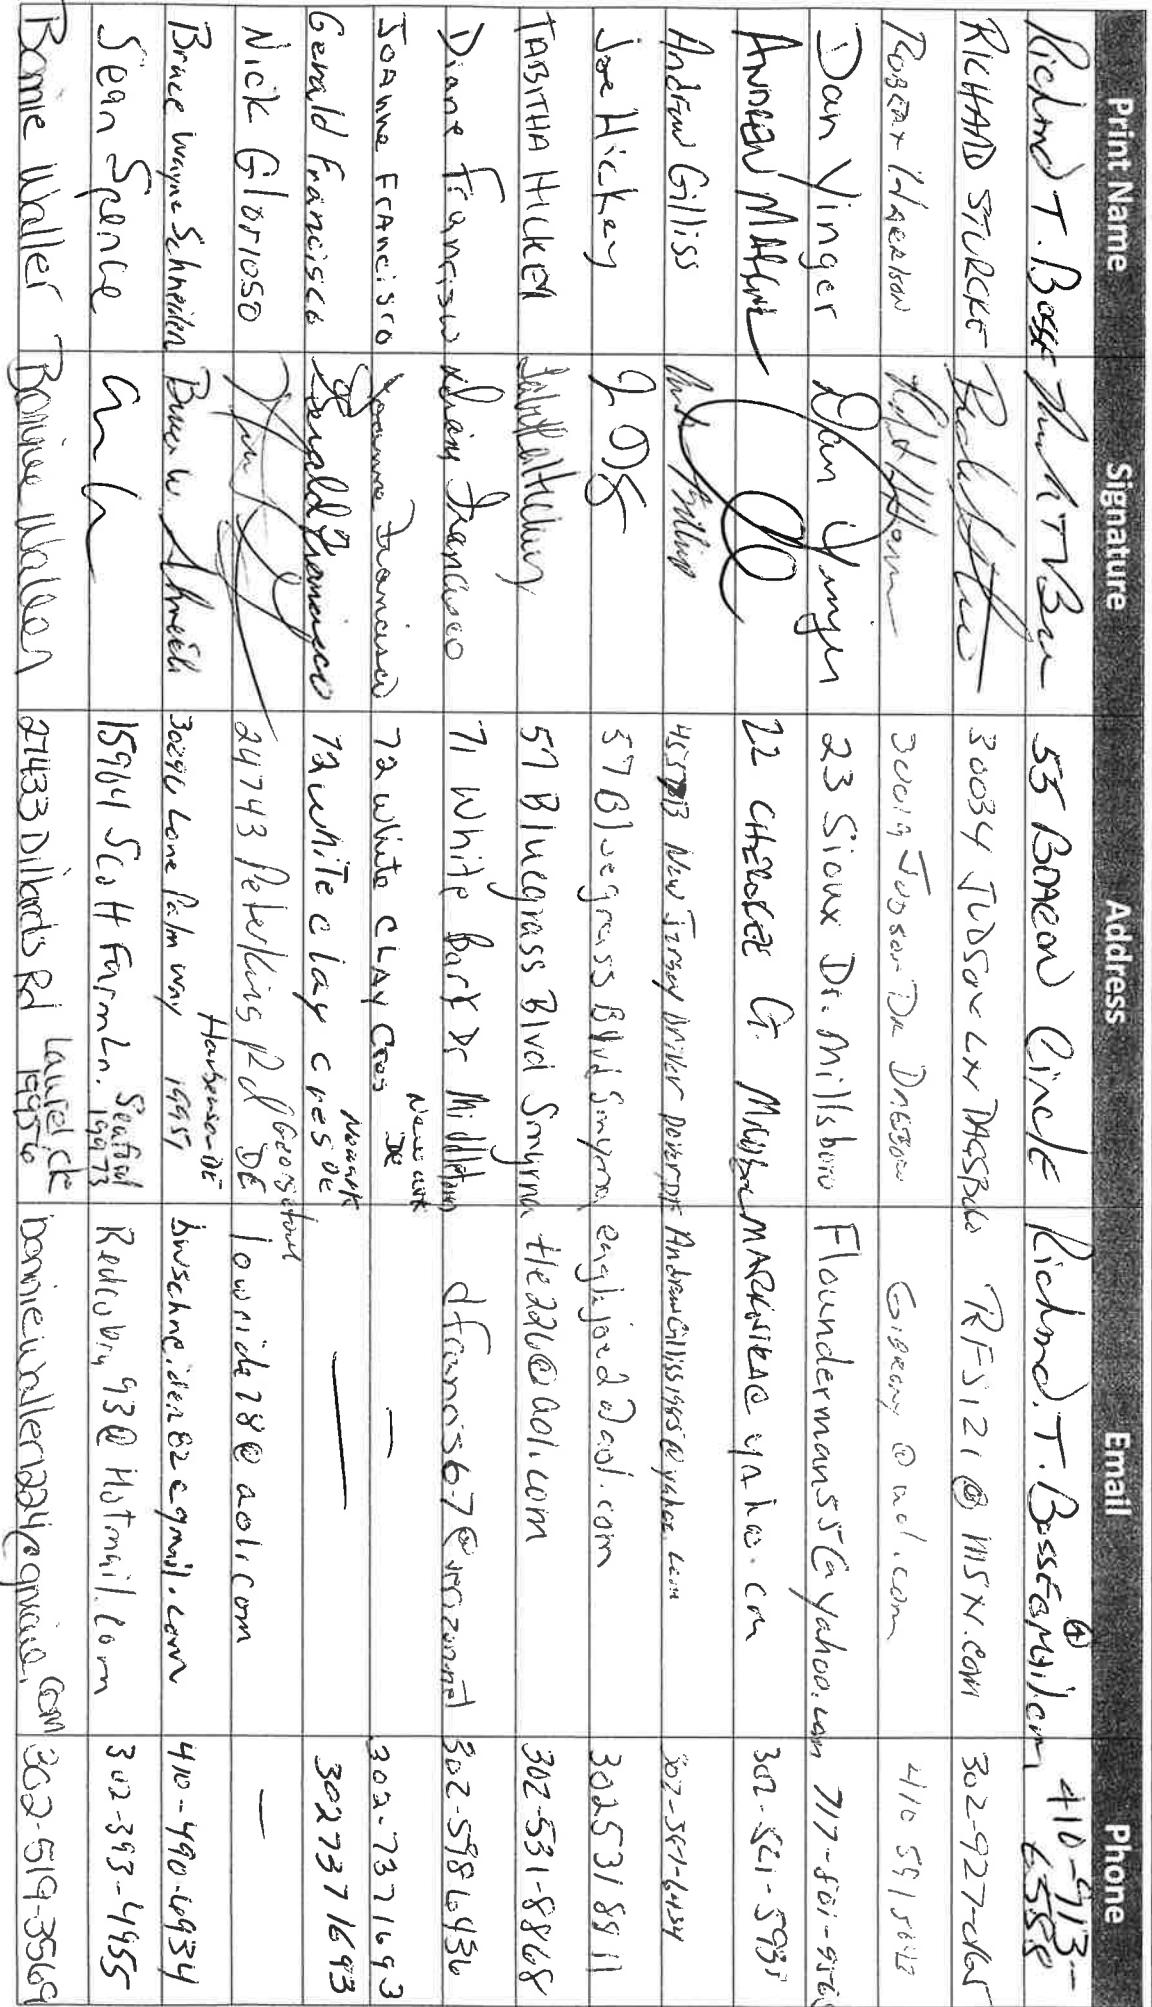 Print Name Signature Address Email Phone
Richard T. Bosse 55 Boaeon Circle Richard.T.Bosse@Mail.com 410-913-6588
RICHARD STURCKE 30034 JUDSON LN DAGSBORO RFS121@MSN.COM 302-927-
Robert 30019 Judson Dr Dagsboro @aol.com 410 591
Dan Yinger Dan Yinger 23 Sioux Dr. Millsboro Flounderman55@yahoo.com 717-801-
ANDREW 22 CHEROKEE
Andrew Gilliss New Jersey Driver Dover DE AndrewGilliss1985@yahoo.com
Joe Hickey 57 Bluegrass Blvd Smyrna eaglejoed2aol.com 3025318811
TABITHA HICKEY Tabitha Hickey 57 Bluegrass Blvd Smyrna tle226@aol.com 302-531-8868
Diane Francisco Diane Francisco 71 White Bark Dr Middletown dfrancis67@verizon.net 302-598 6436
JOANNE FRANCISCO Joanne Francisco 72 White CLAY Cres Newark DE — 302-737 1693
Gerald Francisco Gerald Francisco 72 white clay cres DE Newark — 3027371693
Nick Glorioso 24743 Peterkins Rd Georgetown DE lowride78@aol.com —
Bruce Wayne Schneider Bruce W. Schneider 30296 Lone Palm Way 19951 bwschneider82@gmail.com 410-490-6934
Sean Spence 15964 Scott Farm Ln. Seaford 19973 Redcobra93@Hotmail.com 302-393-4955
Bonnie Waller Bonnie Waller 27433 Dillards Rd Laurel, DE 19956 bonniewaller1224@gmail.com 302-519-3569